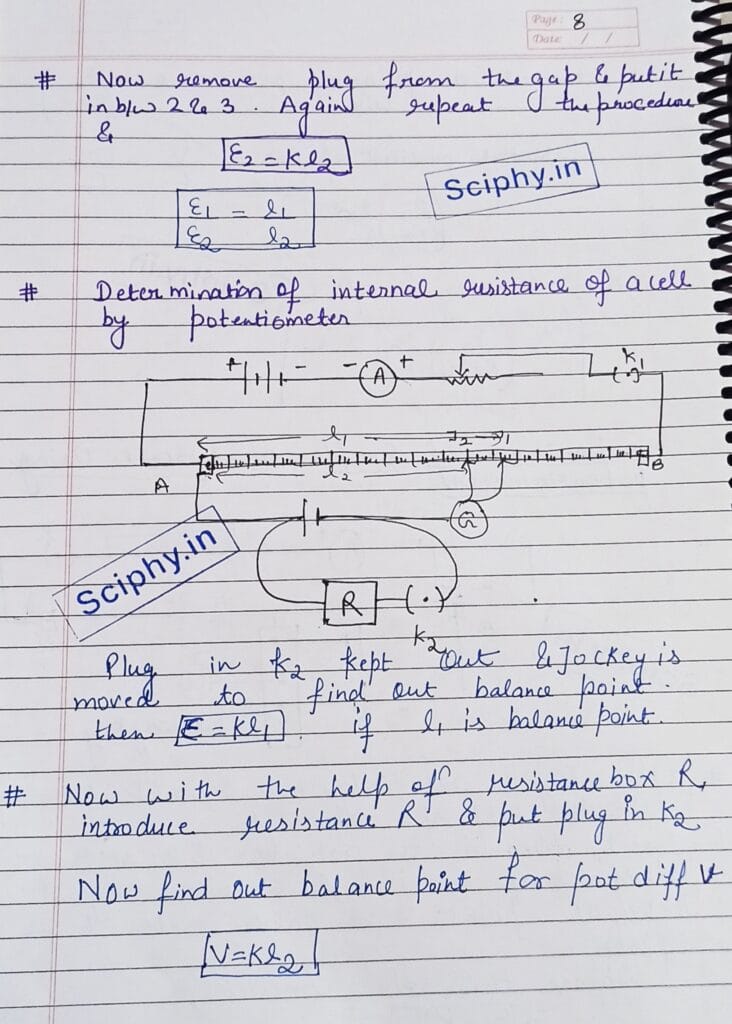 Page: 8
Date: / /
# Now remove plug from the gap & put it
in b/w 2 & 3. Again repeat the procedure
&
E2 = Kl2
Sciphy.in
E1 = l1
E2 l2
# Determination of internal resistance of a cell
by potentiometer
+ - - A + K1
l1 J2 J1
A l2 B
G
Sciphy.in
R (·)
K2
Plug in K2 kept out & Jockey is
moved to find out balance point.
then E = Kl1. if l1 is balance point.
# Now with the help of resistance box R,
introduce resistance R & put plug in K2
Now find out balance point for pot diff V
V = Kl2